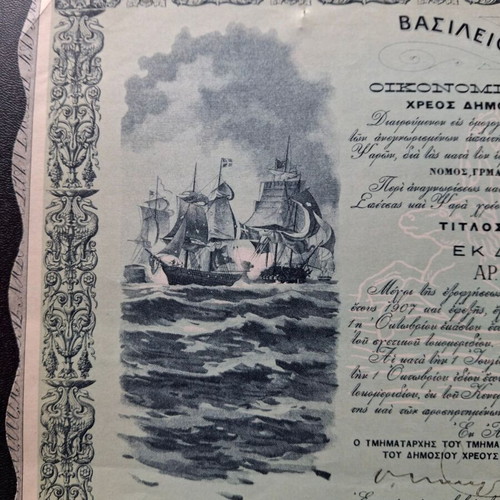 ΒΑΣΙΛΕΙΟ
ΟΙΚΟΝΟΜΙ
ΧΡΕΟΣ ΔΗΜΟ
Διαιρούμενον εἰς ὁμολογ
τῶν ἀνεγνωρισμένων ἀπαιτ
Ψαρῶν, διὰ τὰς κατὰ τὸν
ΝΟΜΟΣ, ΓΡΜΑ
Περὶ ἀναγνωρίσεως κα
Σπέτσας καὶ Ψαρὰ χρέο
ΤΙΤΛΟΣ
ΕΚ Δ
ΑΡ
Μέχρι τῆς ἐξοφλήσεω
ἔτους 1907 καὶ ἐφεξῆς,
1η Ὀκτωβρίου ἑκάστου
τοῦ σχετικοῦ τοκομεριδίου.
Αἱ κατὰ τὴν 1 Ἰουλ
τὴν 1 Ὀκτωβρίου ἰδίου ἔτου
τοκομεριδίου, ἐν τοῦ Κεντ
της καὶ τῶν προσηρτημένων
Ἐν
Ο ΤΜΗΜΑΤΑΡΧΗΣ ΤΟΥ ΤΜΗΜΑ
ΤΟΥ ΔΗΜΟΣΙΟΥ ΧΡΕΟΥΣ